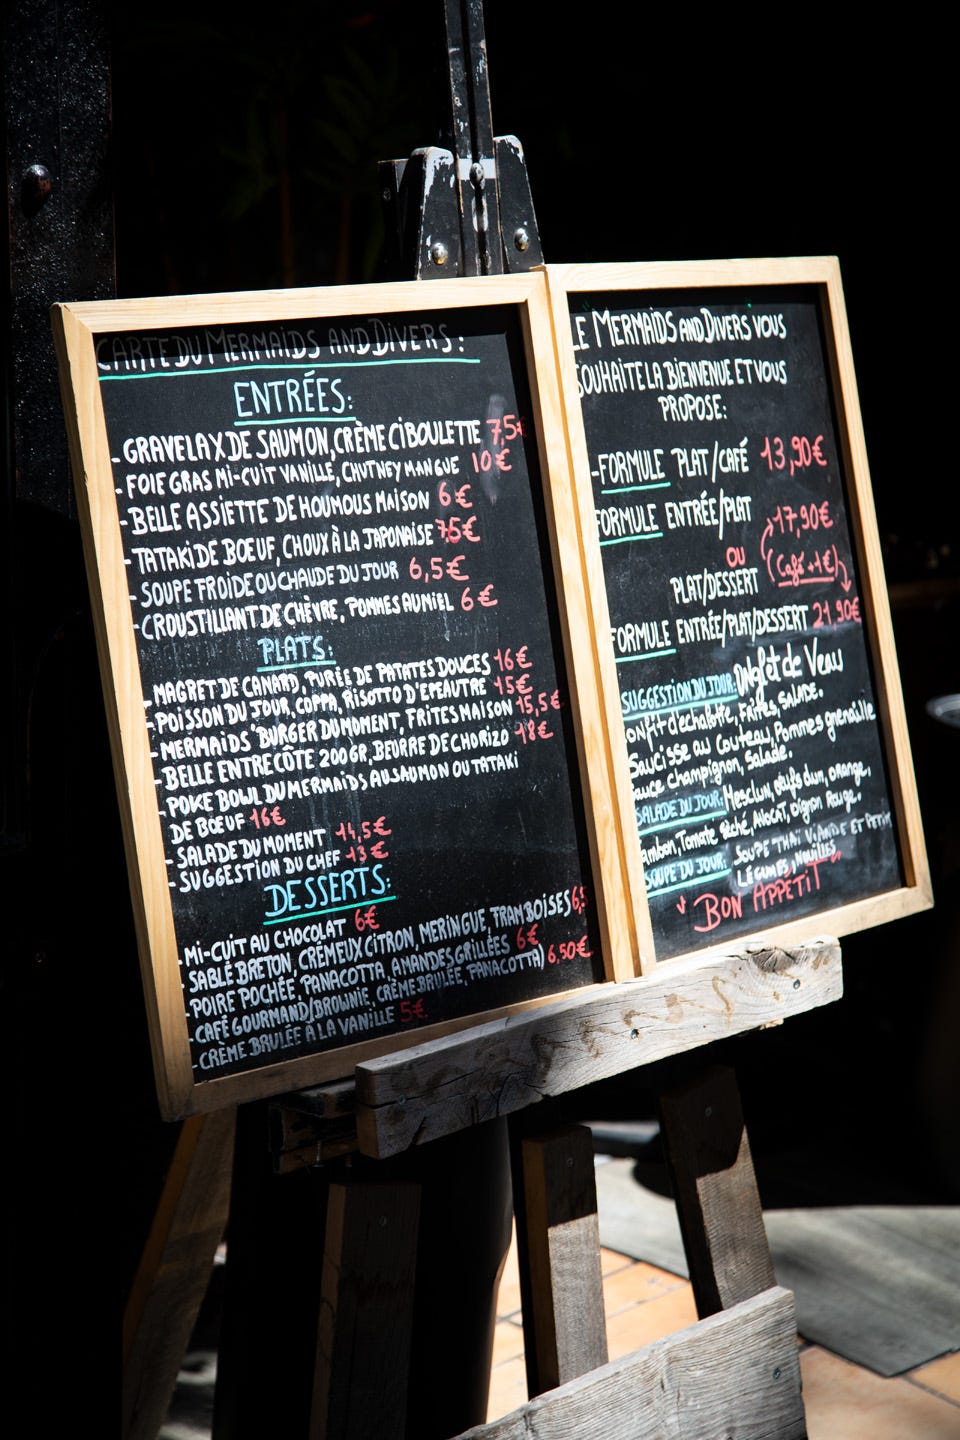 CARTE DU MERMAIDS AND DIVERS:
ENTRÉES:
- GRAVELAX DE SAUMON, CRÈME CIBOULETTE 7,5€
- FOIE GRAS MI-CUIT VANILLE, CHUTNEY MANGUE 10€
- BELLE ASSIETTE DE HOUMOUS MAISON 6€
- TATAKI DE BŒUF, CHOUX À LA JAPONAISE 7,5€
- SOUPE FROIDE OU CHAUDE DU JOUR 6,5€
- CROUSTILLANT DE CHÈVRE, POMMES AU MIEL 6€
PLATS:
- MAGRET DE CANARD, PURÉE DE PATATES DOUCES 16€
- POISSON DU JOUR, COPPA, RISOTTO D'EPEAUTRE 15€
- MERMAIDS' BURGER DU MOMENT, FRITES MAISON 15,5€
- BELLE ENTRECÔTE 200GR, BEURRE DE CHORIZO 18€
- POKE BOWL DU MERMAIDS AU SAUMON OU TATAKI
DE BŒUF 16€
- SALADE DU MOMENT 14,5€
- SUGGESTION DU CHEF 13€
DESSERTS:
- MI-CUIT AU CHOCOLAT 6€
- SABLÉ BRETON, CRÉMEUX CITRON, MERINGUE, FRAMBOISES
- POIRE POCHÉE, PANACOTTA, AMANDES GRILLÉES 6€
- CAFÉ GOURMAND (BROWNIE, CRÈME BRULÉE, PANACOTTA) 6,50€
- CRÈME BRULÉE À LA VANILLE 5€
LE MERMAIDS AND DIVERS VOUS
SOUHAITE LA BIENVENUE ET VOUS
PROPOSE:
- FORMULE PLAT/CAFÉ 13,90€
FORMULE ENTRÉE/PLAT 17,90€
OU (Café +1€)
PLAT/DESSERT
FORMULE ENTRÉE/PLAT/DESSERT 21,90€
SUGGESTION DU JOUR: Onglet de Veau
onfit d'echalotte, Frites, SALADE.
Saucisse au Couteau, Pommes grenaille
auce champignon, Salade.
SALADE DU JOUR: Mesclun, œufs durs, orange,
ambon, Tomate Pêché, Avocat, Oignon Rouge.
SOUPE DU JOUR: SOUPE THAÏ VIANDE ET PETIT
LÉGUMES, NOUILLES
BON APPETIT